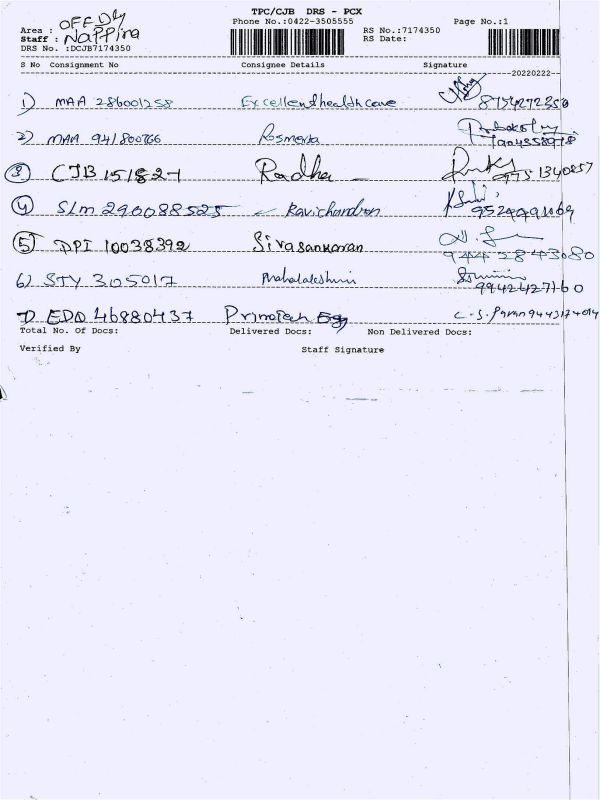 TPC/CJB DRS - PCX
Phone No.:0422-3505555 Page No.:1
Area : OFF DY
RS No.:7174350
Staff : Nappina
RS Date:
DRS No. :DCJB7174350
S No Consignment No Consignee Details Signature
20220222
1) MAA 286001258 Excellenthealthcare
2) MAA 941800766 Rosmerta
3 CJB 151827 Radha 9751340857
4 SLM 290088525 Ravichandran
5 DPI 10038392 Sivasankaran 9442843080
6) STY 305017 Mahalakshmi 9942427160
7) EDD 46880437 Primotech Egg C.S.Pavan 9443174014
Total No. Of Docs: Delivered Docs: Non Delivered Docs:
Verified By Staff Signature